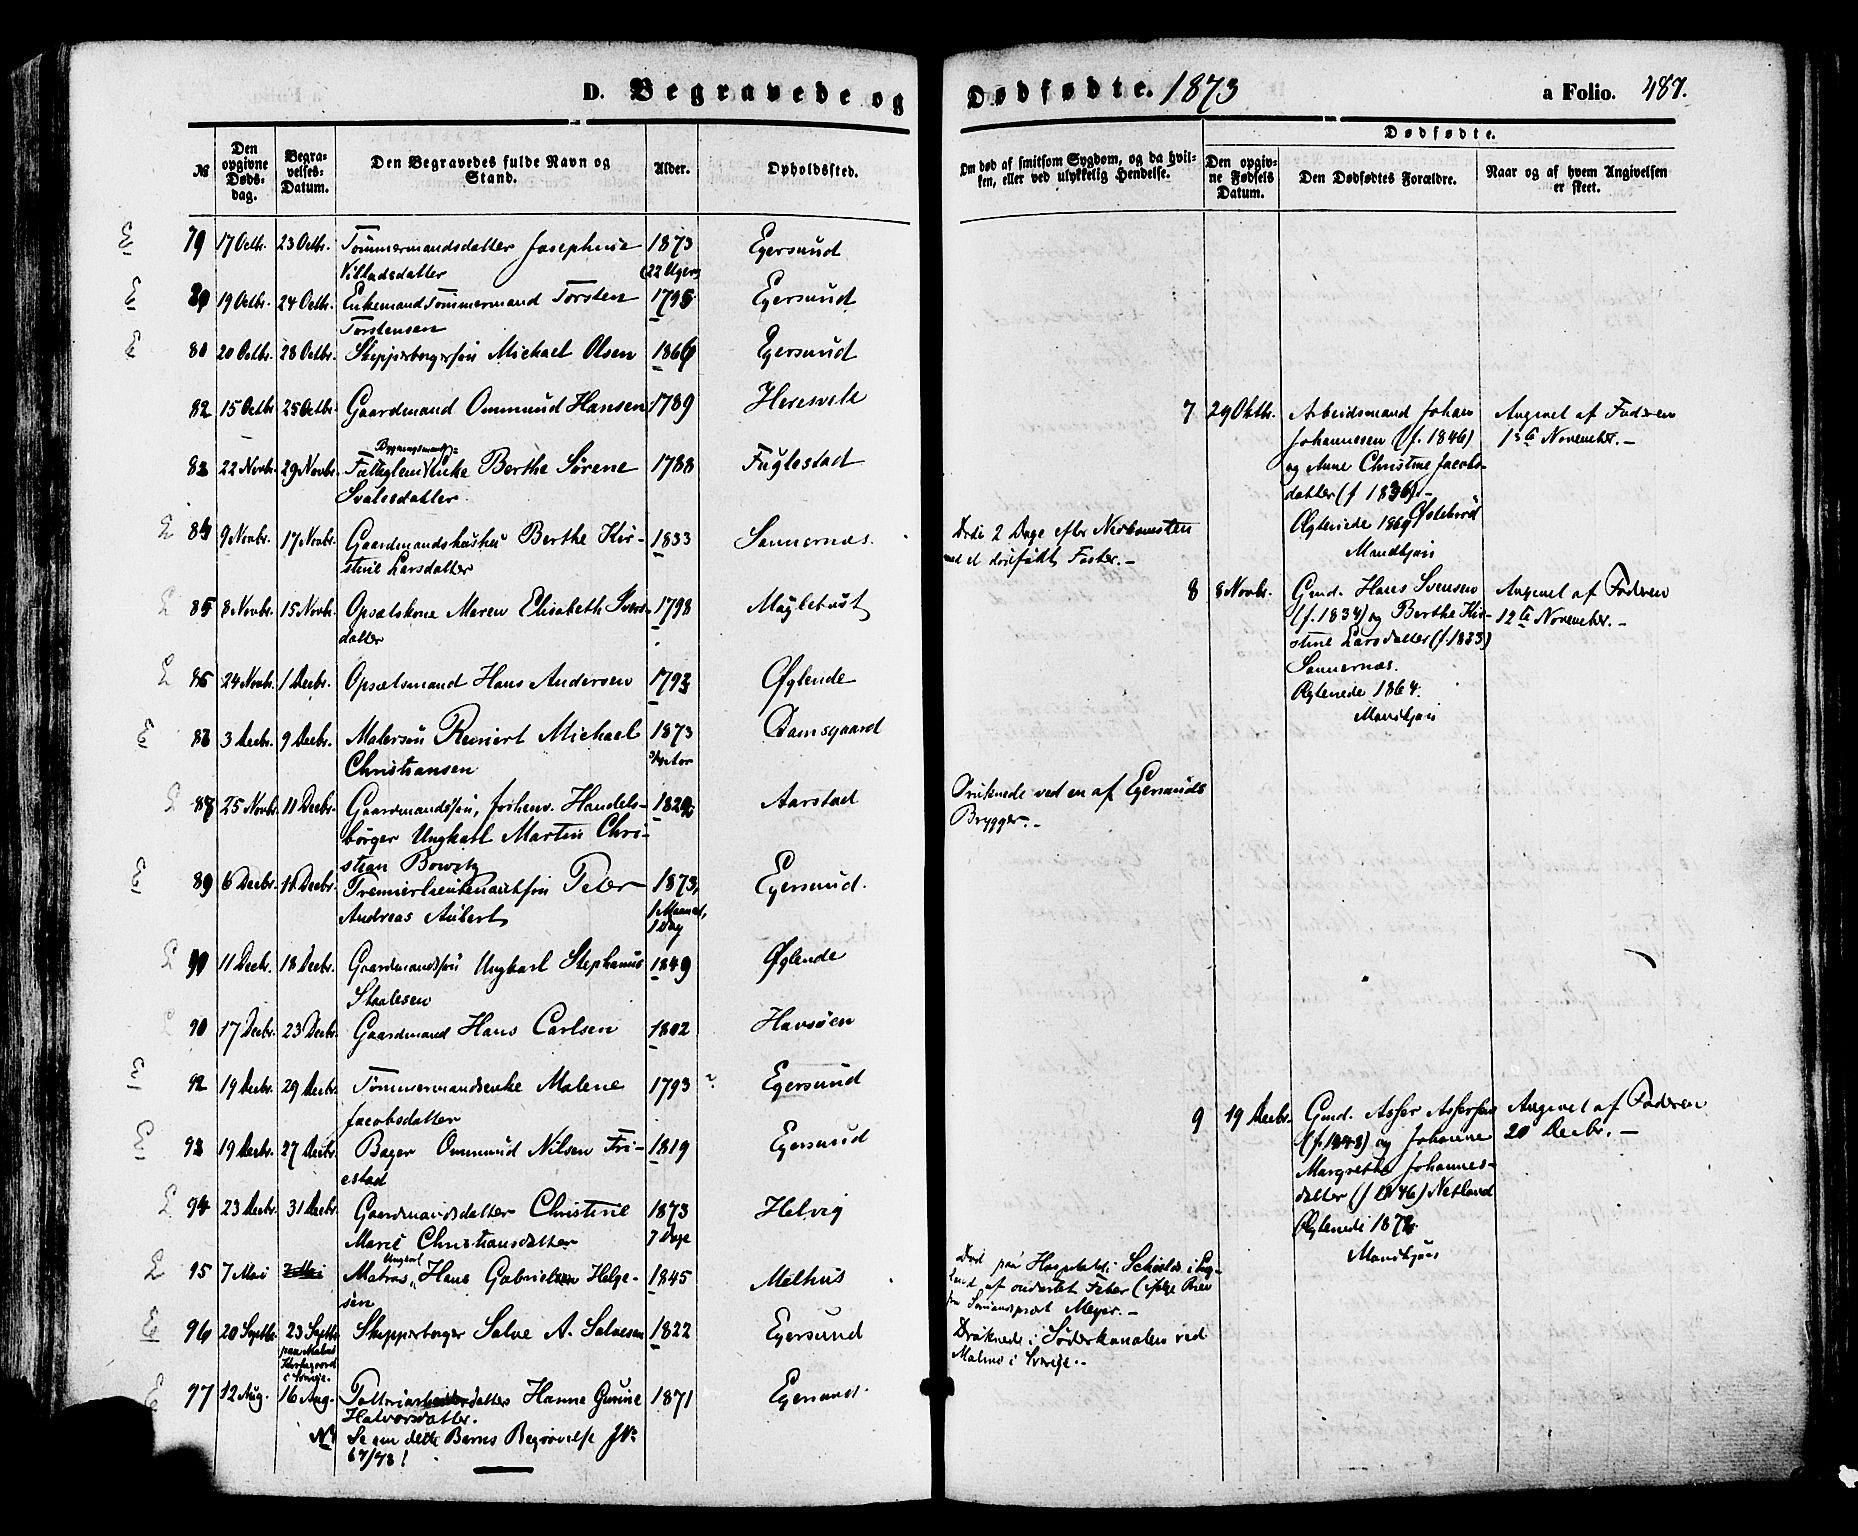 D. Begravede og Dødfødte. 1873 a Folio. 487.
№ Den opgivne Dødsdag. Begravelses-Datum. Den Begravedes fulde Navn og Stand. Alder. Opholdssted.
Om død af smitsom Sygdom, og da hvilken, eller ved ulykkelig Hendelse.
Dødfødte.
Den opgivne Fødsels Datum. Den Dødfødtes Forældre. Naar og af hvem Angivelsen er skeet.
79 17 Octbr. 23 Octbr. Tømmermandsdatter Josephine 1873 Egersund
(22 Uger)
19 Octbr. 24 Octbr. Enkemand Tømmermand Torsten 1795 Egersund
Torstensen
80 20 Octbr. 28 Octbr. Skipperborgersøn Michael Olsen 1866 Egersund
82 15 Octbr 25 Octbr. Gaardmand Ommund Hansen 1789
83 22 Novbr. 29 Novbr. Enke Berthe Sørene 1788 Fuglestad
84 9 Novbr. 17 Novbr. Gaardmandskone Berthe Kir- 1833 Sannernæs.
stine Larsdatter
Døde 2 Dage efter Nedkomsten
med et dødfødt Foster.-
85 8 Novbr. 15 Novbr. Opsætskone Maren Elisabeth 1798
datter
24 Novbr. 1 Decbr. Opsætsmand Hans Andersen 1793 Øglende
3 Decbr. 9 Decbr. Michael 1873 Damsgaard
Christiansen
25 Novbr. 11 Decbr. Gaardmandssøn, forhenv. Handels- Aarstad
borger Ungkarl Martin Chri-
stian
Druknede ved en af Egersunds
Brygger.-
89 6 Decbr. Premierlieutenantsøn Peter 1873, Egersund.
Andreas Aubert 1 Maaned,
1 Dag
11 Decbr. 18 Decbr. Gaardmandssøn Ungkarl Stephanus 1849 Øglende
Staalesen
90 17 Decbr. 23 Decbr. Gaardmand Hans Carlsen 1802 Havsøen
92 19 Decbr. 29 Decbr. Tømmermandsenke Malene 1793 Egersund
Jacobsdatter
93 19 Decbr. 27 Decbr. Bager Ommund Nilsen Fri- 1819 Egersund
estad
94 23 Decbr. 31 Decbr. Gaardmandsdatter Christine 1873 Helvig
Marie Christiansdatter 7 Dage
95 7 Mai Matros, Ungkarl Hans Gabriel Helge- 1845 Melhus
sen
Død paa Hospitalet i Shields i Eng-
land af ondartet Feber (ifølge Brev
fra Sømandsprest Meyer.-
96 20 Septbr. 23 Septbr. Skipperborger Salve A. Salvesen 1822 Egersund
paa Malmø
Kirkegaard
i Sverige.
Druknede i Söderkanalen ved
Malmø i Sverige.-
97 12 Aug. 16 Aug. Hanne Gurine 1871 Egersund.
Halvorsdatter.
NB Se om dette Barns Begravelse № 67/73!
7 29 Oktbr. Arbeidsmand Johan Angivet af Faderen
Johannesen (f. 1846) 1ste November.-
og Anne Christine Jacobs-
datter (f 1836).-
Ægteviede 1869
8 8 Novbr. Gmd. Hans Svensen Angivet af Faderen
(f. 1834) og Berthe Kir- 12te November.-
stine Larsdatter (f. 1833)
Sannernæs.
Ægteviede 1864.
9 19 Decbr. Gmd. Asser Assersen Angivet af Faderen
(f. 1843) og Johanne 20 Decbr.-
Margrethe Johannes-
datter (f 1846) Netland
Ægteviede 1872.